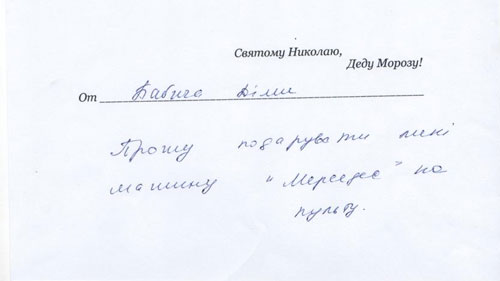 Святому Николаю,
Деду Морозу!
От Бабича Діми
Прошу подарувати мені
машину "Мерседес" на
пульту.